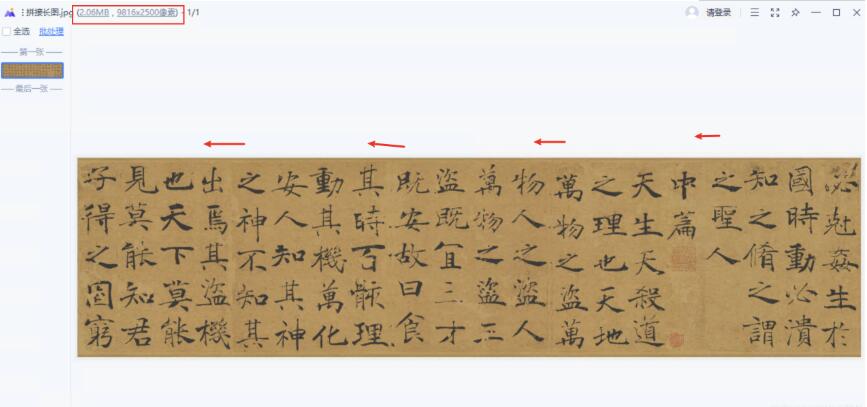 拼接长图.jpg (2.06MB , 9816x2500像素) - 1/1
请登录
全选 批处理
第一张
最后一张
必尅姦生於
國時動必潰
知之脩之謂
之聖人
中篇
天生天殺道
之理也天地
萬物之盜萬
物人之盜人
萬物之盜三
盜既宜三才
既安故曰食
其時百骸理
動其機萬化
安人知其神
之神不知其
出焉其盜機
也天下莫能
見莫能知君
子得之固窮